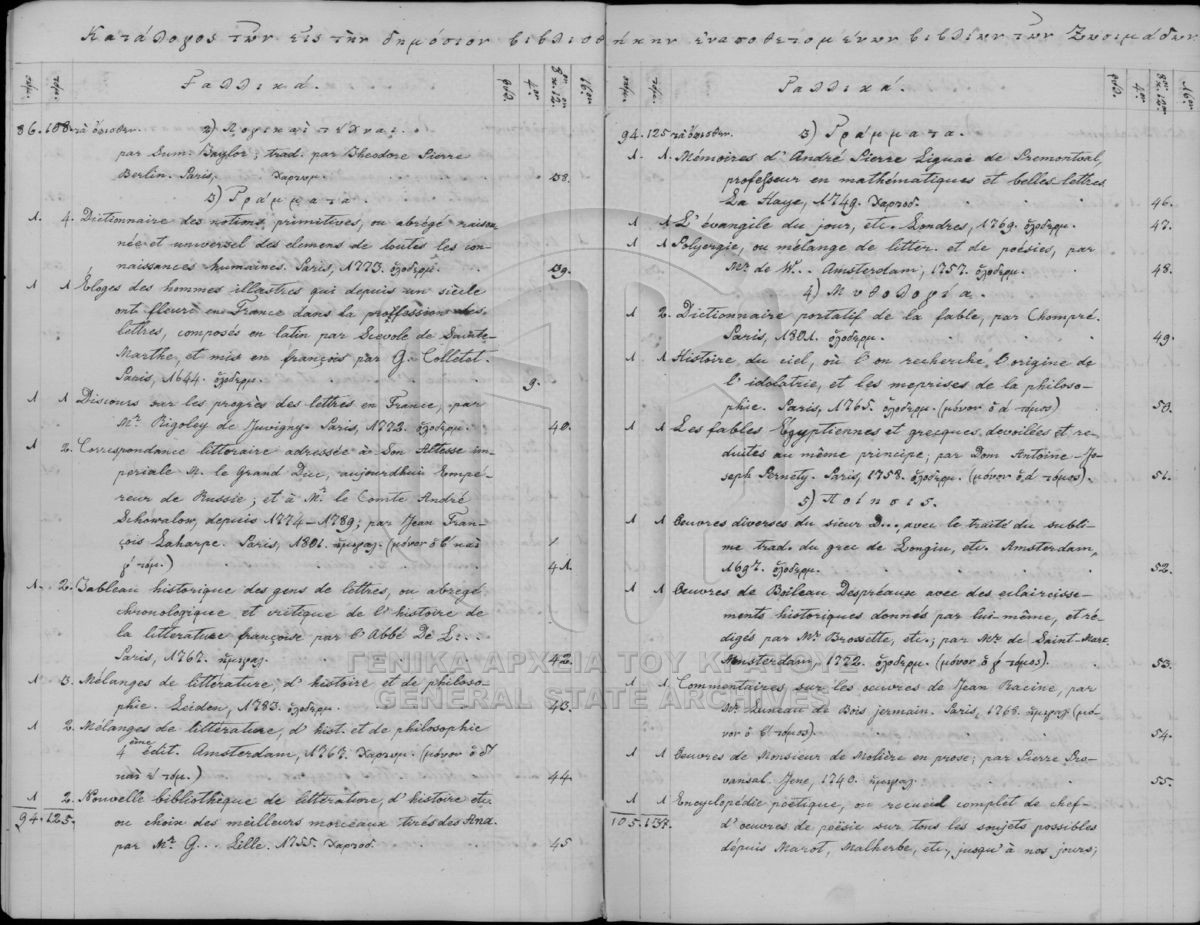 Κατάλογος τῶν εἰς τὴν δημόσιον βιβλιοθήκην ἐναποθετομένων βιβλίων τῶν Ζωσιμάδων
σώμ. τόμ. Γαλλικά. φύλ. 4ον 8ον κ. 12ον 16ον
86. 108. τὰ ὄπισθεν. 2) Λογικαὶ τέχναι.
par Sum: Taylor; trad. par Theodore Pierre
Berlin. Paris, Χαρτωμ. 38.
3) Γράμματα.
1. 4. Dictionnaire des notions primitives, ou abrégé raison
née et universel des elemens de toutes les con-
naissances humaines. Paris, 1773. ὁλοδερμ. 39.
1 1 Eloges des hommes illustres qui depuis un siècle
ont fleuri en France dans la proffession des
lettres, composés en latin par Scevole de Sainte-
Marthe, et mis en françois par G. Colletet.
Paris, 1644. ὁλοδερμ. 9.
1 1 Discours sur les progrès des lettres en France, par
Mr. Rigoley de Juvigny. Paris, 1772. ὁλοδερμ. 40.
1 2. Correspondance litteraire adressée à Son Altesse im-
periale M. le Grand Duc, aujourdhui Empe-
reur de Russie; et à Mr. le Comte André
Schowalow, depuis 1774-1789; par Jean Fran-
çois Laharpe. Paris, 1801. ἡμιφαλ. (μόνον ὁ β' καὶ
τόμ.) 41.
1. 2. Tableau historique des gens de lettres, ou abregé
chronologique et critique de l'histoire de
la litterature françoise par l'Abbé De L...
Paris, 1767. ἡμιφαλ. 42.
1 3. Mélanges de litterature, d'histoire et de philoso-
phie. Leiden, 1783. ὁλοδερμ. 43.
1 2. Mélanges de litterature, d'hist. et de philosophie
4ème édit. Amsterdam, 1767. Χαρτωμ. (μόνον ὁ δ'
καὶ έ τόμ.) 44.
1 2. Nouvelle bibliothèque de litterature, d'histoire etc.
ou choix des meilleurs morceaux tirés des Ana.
94. 125. par Mr. G... Lille. 1755. Χαρτοδ. 45
σώμ. τόμ. Γαλλικά. φύλ. 4ον 8ον κ. 12ον 16ον
94. 125 τὰ ὄπισθεν. 3) Γράμματα.
1 1. Mémoires d'André Pierre Liguac de Premontval,
professeur en mathématiques et belles lettres
La Haye, 1749. Χαρτοδ. 46.
1 1 L'évangile du jour, etc. Londres, 1769. ὁλοδερμ. 47.
1 1 Polyergie, ou mélange de litter. et de poësies, par
Mr. de W... Amsterdam, 1757. ὁλοδερμ. 48.
4) Μυθολογία.
1 2. Dictionnaire portatif de la fable, par Chompré.
Paris, 1801. ὁλοδερμ. 49.
1 1 Histoire du ciel, où l'on recherche l'origine de
l'idolatrie, et les meprises de la philoso-
phie. Paris, 1765. ὁλοδερμ. (μόνον ὁ ά τόμος) 50.
1 1 Les fables Egyptiennes et grecques devoilées et re-
duites au même principe; par Dom Antoine-Jo-
seph Pernety. Paris, 1758. ὁλοδερμ. (μόνον ὁ ά τόμος). 51.
5) Ποίησις.
1 1 Œuvres diverses du sieur D... avec le traité du subli-
me trad. du grec de Longin, etc. Amsterdam,
1697. ὁλοδερμ. 52.
1 1 Œuvres de Boileau Despréaux avec des eclaircisse-
ments historiques donnés par lui-même, et ré-
digés par Mr. Brossette, etc.; par Mr. de Saint-Marc.
Amsterdam, 1772. ὁλοδερμ. (μόνον ὁ τόμος). 53.
1 1. Commentaires sur les œuvres de Jean Racine, par
Mr. Luneau de Bois jermain. Paris, 1768. ἡμιφαλ. (μό-
νον ὁ τόμος). 54.
1 1 Œuvres de Monsieur de Molière en prose; par Pierre Pro-
vansal. Jene, 1740. ἡμιφαλ. 55.
1 1 Encyclopédie poëtique, ou recueil complet de chef-
105. 137. d'œuvres de poësie sur tous les soujets possibles
dépuis Marot, Malherbe, etc., jusqu'à nos jours;
ΓΕΝΙΚΑ ΑΡΧΕΙΑ ΤΟΥ ΚΡΑΤΟΥΣ
GENERAL STATE ARCHIVES